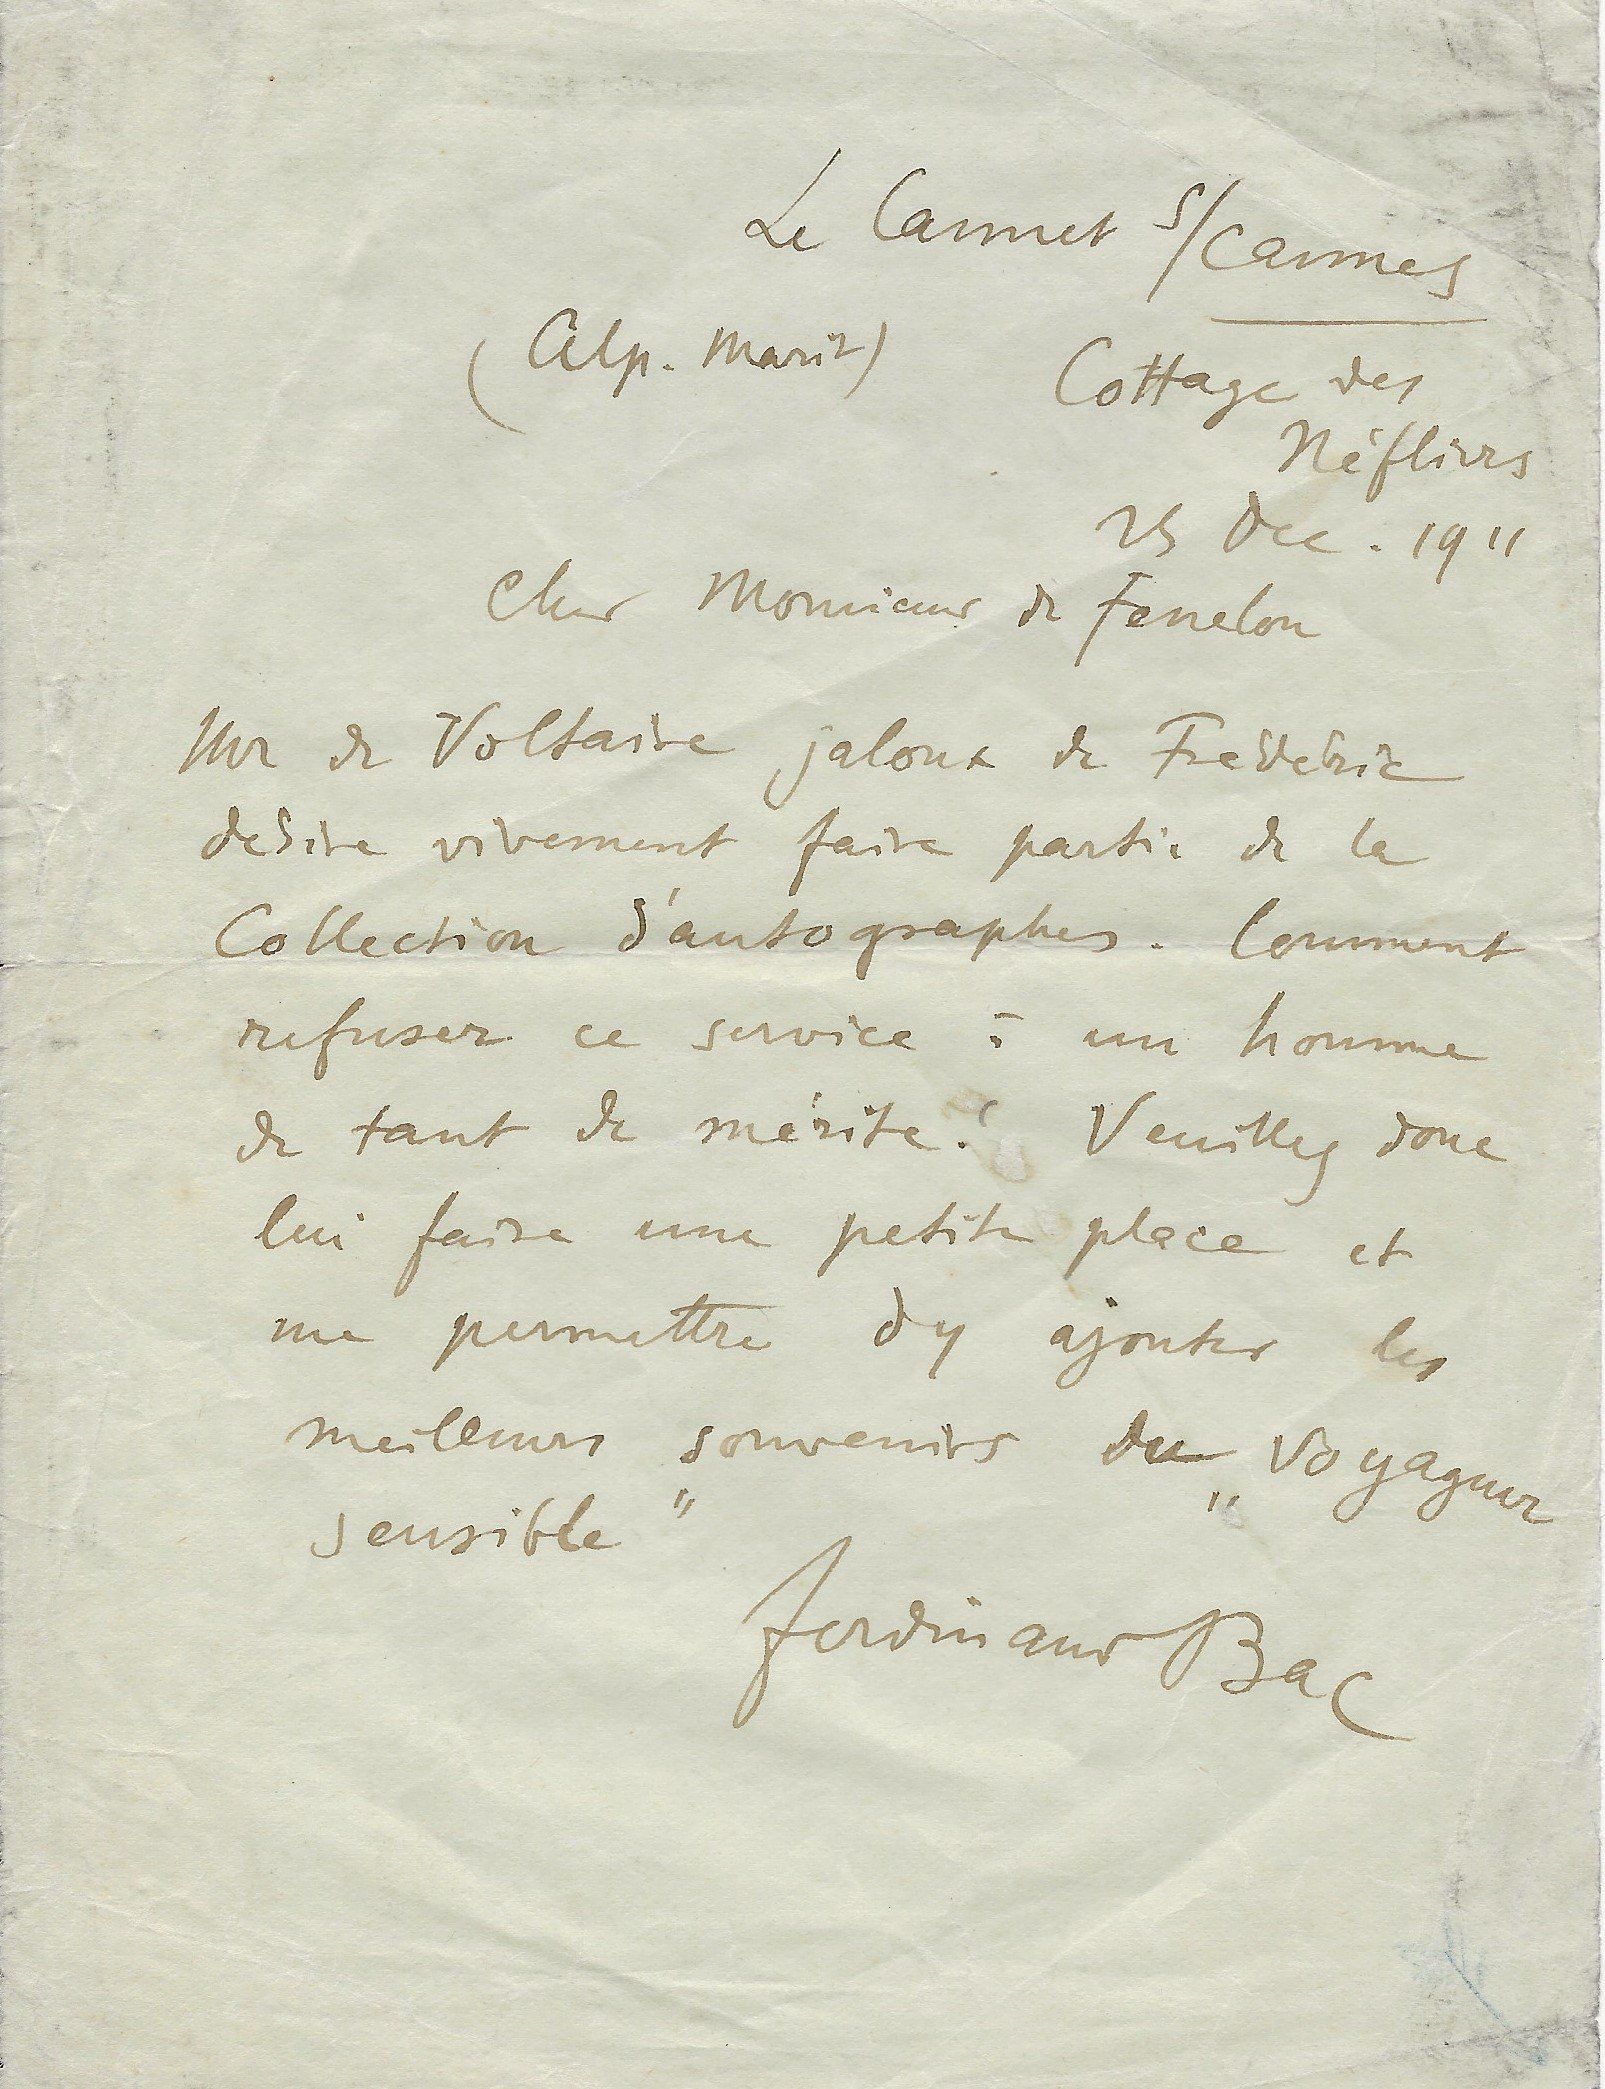 Le Cannet s/Cannes
(Alp. Marit) Cottage des
Néfliers
25 Dec. 1911
Cher Monsieur de Fenelon
Mr de Voltaire jaloux de Frédéric
desire vivement faire partie de la
Collection d'autographes. Comment
refuser ce service à un homme
de tant de mérite! Veuillez donc
lui faire une petite place et
me permettre d'y ajouter les
meilleurs souvenirs du "Voyageur
sensible"
Ferdinand Bac